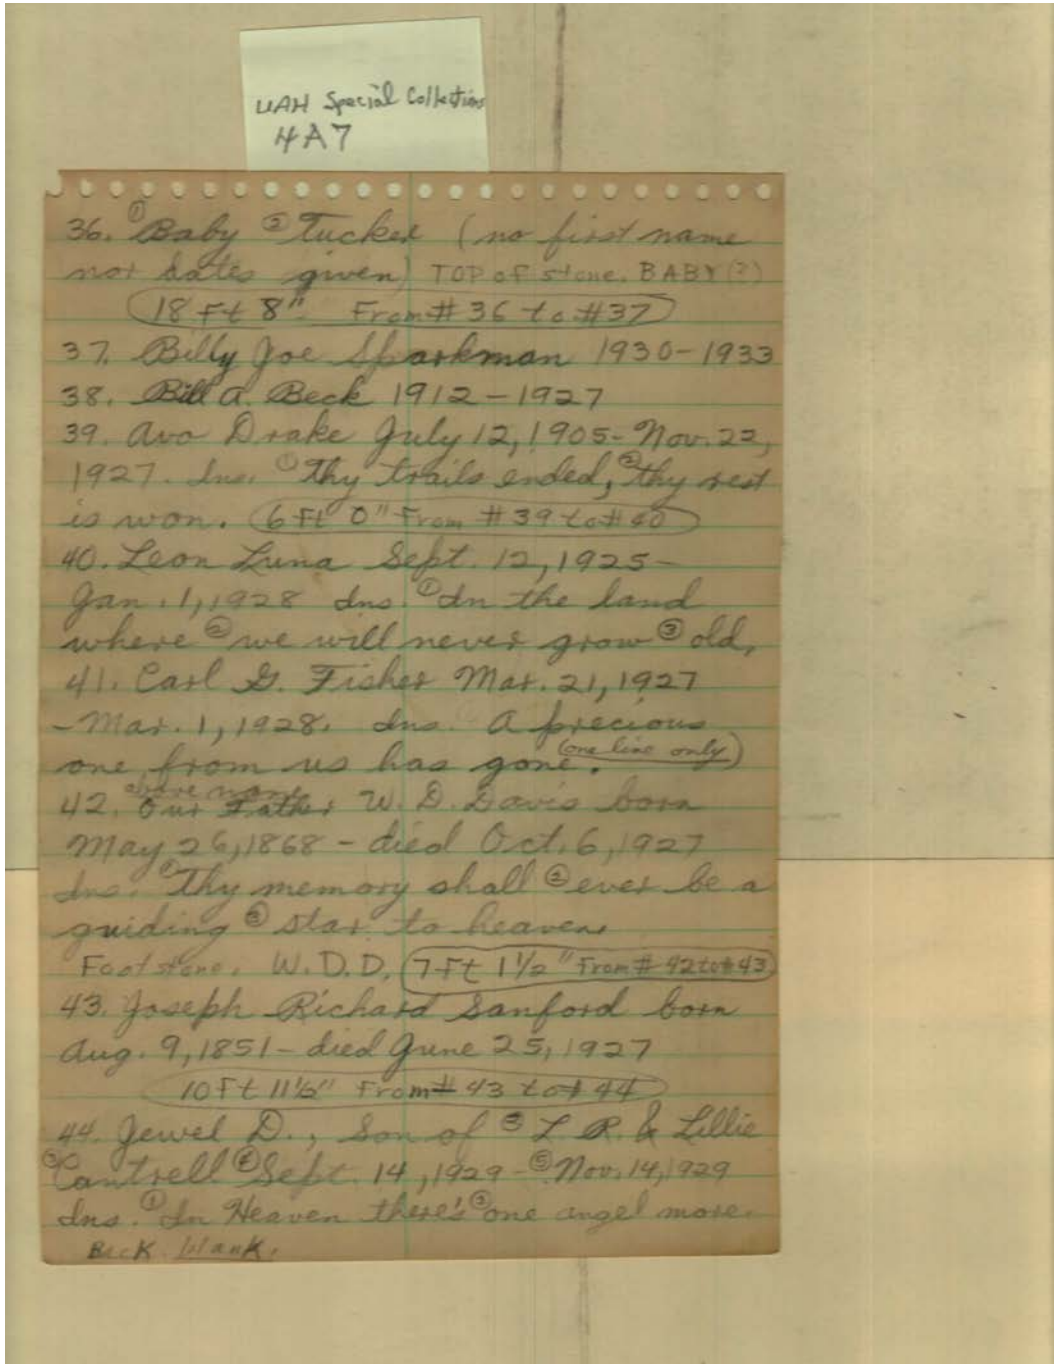 UAH Special Collections
4A7
36. ① Baby ② Tucker (no first name
nor dates given) TOP of stone. BABY (?)
18 Ft 8" From # 36 to #37
37. Billy Joe Sparkman 1930-1933
38. Bill A. Beck 1912-1927
39. Ava Drake July 12, 1905- Nov. 22,
1927. Ins. ① Thy trails ended, ② thy rest
is won. 6 Ft 0" From #39 to #40
40. Leon Luna Sept. 12, 1925-
Jan. 1, 1928 Ins. ① In the land
where ② we will never grow ③ old.
41. Carl G. Fisher Mar. 21, 1927
- Mar. 1, 1928. Ins. A precious
one from us has gone. (one line only)
above name
42. Our Father W. D. Davis born
May 26, 1868 - died Oct. 6, 1927
Ins. ① Thy memory shall ② ever be a
guiding ③ star to heaven.
Foot stone. W.D.D. 7 Ft 1 1/2" From # 42 to #43
43. Joseph Richard Sanford born
Aug. 9, 1851 - died June 25, 1927
10 Ft 11 1/2" From # 43 to # 44
44. Jewel D., Son of ③ L R. & Lillie
Cantrell ④ Sept. 14, 1929 - ⑤ Nov. 14, 1929
Ins. ① In Heaven there's ② one angel more.
Back blank.